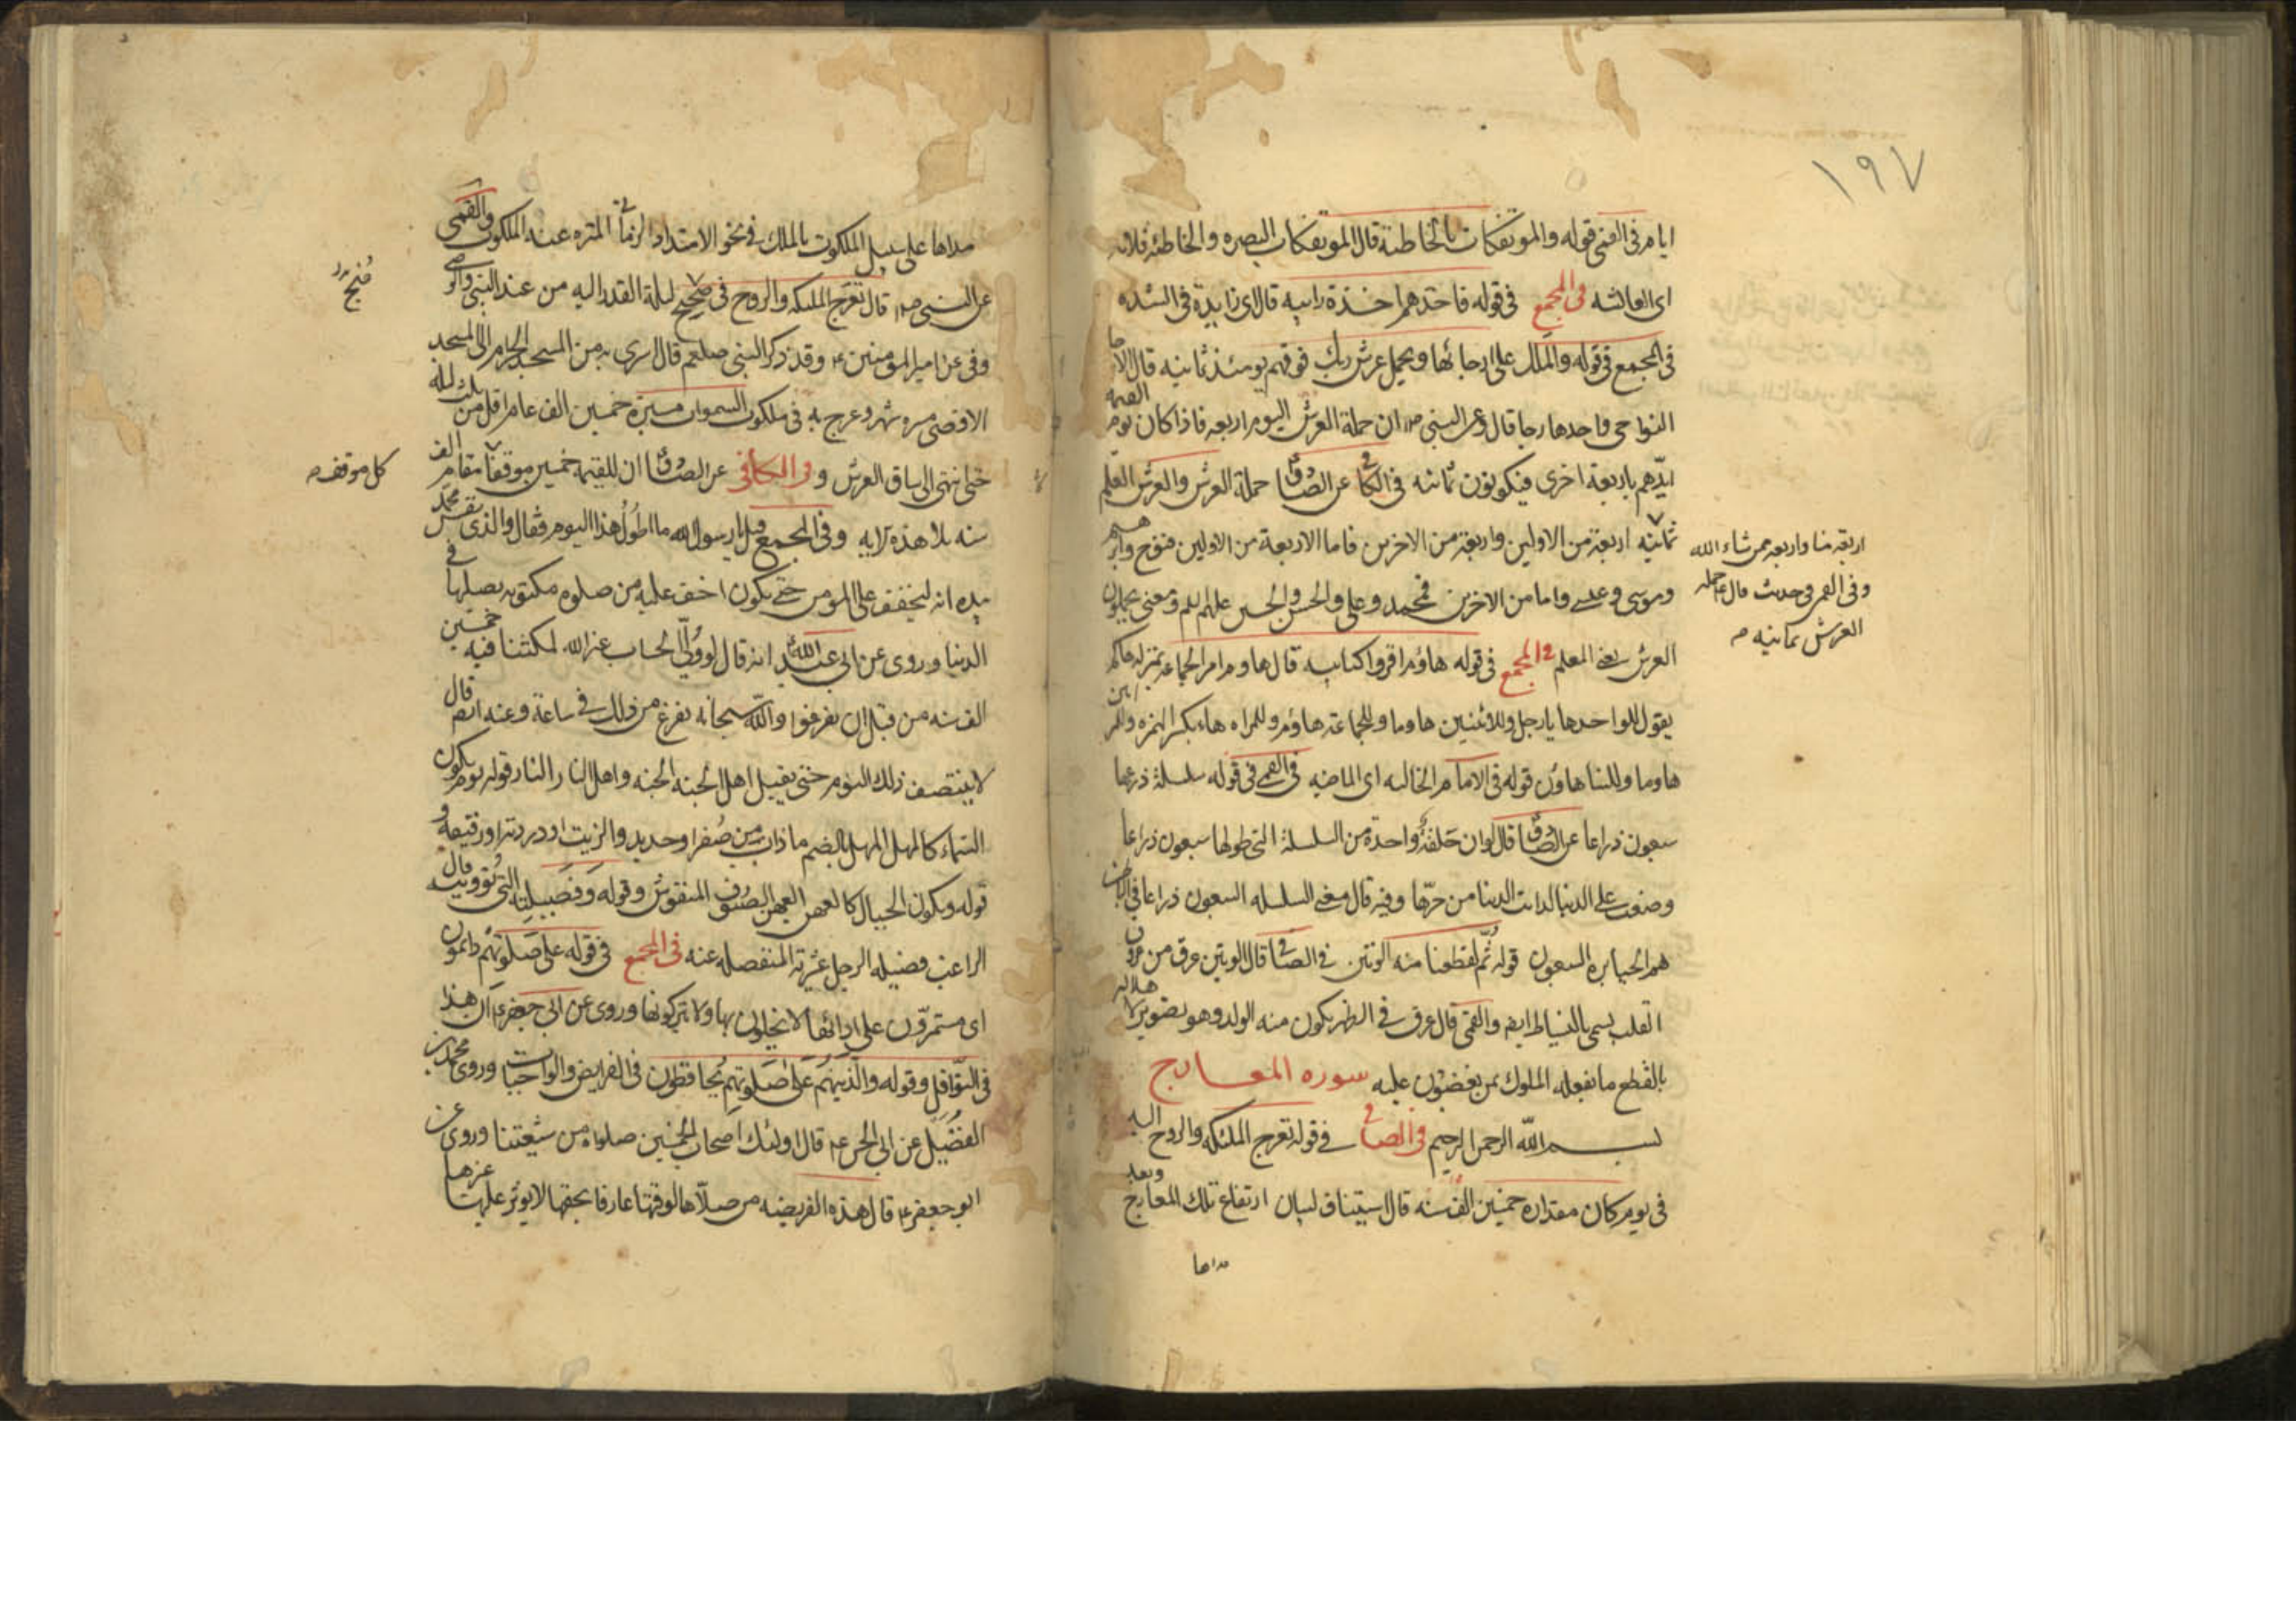 ١٩٧
ايام فى القمى قوله والموتفكات بالخاطئة قال الموتفكات البصره والخاطئه فلانه
فى المجمع فى قوله فاخذهم اخذة رابيه قال اى زايدة فى الشده
فى المجمع فى قوله والملك على ارجائها ويحمل عرش ربك فوقهم يومئذ ثمانيه قال الارجا
النواحى واحدها رجا قال وعن النبى ص ان حملة العرش اليوم اربعه فاذا كان يوم القيمه
ايّدهم باربعة اخرى فيكونون ثمانيه فى الكافى عن الصادق حملة العرش والعرش العلم
ثمانيه اربعة من الاولين واربعة من الاخرين فاما الاربعة من الاولين فنوح وابرهيم
وموسى وعيسى واما من الاخرين فمحمد وعلى والحسن والحسين عليهم السلم ومعنى يحملون
العرش يعنى العلم فى المجمع فى قوله هاؤم اقرؤا كتابيه قال هاوم امر الجماعه بمنزله هاكم
يقول للواحد ها يا رجل وللاثنين هاوما وللجماعة هاؤم وللمراه هاء بكسر الهمزه
هاوما وللنسا هاؤن قوله فى الايام الخاليه اى الماضيه فى القمى فى قوله سلسلة ذرعها
سبعون ذراعا عن الصادق قال لو ان حلقة واحدة من السلسلة التى طولها سبعون ذراعا
وضعت على الدنيا لذابت الدنيا من حرّها وفيه قال معنى السلسله السبعون ذراعا فى الباطن
هم الجبابره السبعون قوله ثم لقطعنا منه الوتين فى الصافى قال الوتين عرق من عروق
القلب يسمى بالنياط ايضا والقمى قال عرق فى الظهر يكون منه الولد وهو تصوير لاهلاكه
بالقطع ما يفعله الملوك بمن يغضبون عليه سوره المعارج
بسم الله الرحمن الرحيم فى الصافى فى قوله تعرج الملئكه والروح اليه
فى يوم كان مقداره خمسين الف سنه قال استيناف لبيان ارتفاع تلك المعارج وبعد
مداها
اربعه منا واربعه ممن شاء الله
وفى القمى فى حديث قال ع حمله
العرش ثمانيه
مداها على سبيل الملكوت بالملك فى نحو الامتداد الزمانى المنزه عنه الملكوت والقمى
عن النبى ص قال تعرج الملئكه والروح فى صبح ليلة القدر اليه من عند النبى والوصى
وفى عن امير المومنين ع وقد ذكر النبى صلعم قال اسرى به من المسجد الحرام الى المسجد
الاقصى مسيره شهر وعرج به فى ملكوت السموات مسيرة خمسين الف عام اقل من ثلث ليله
حتى انتهى الى ساق العرش و فى الكافى عن الصادق ان للقيمه خمسين موقفا مقام الف
سنه تلا هذه الايه وفى المجمع قيل يا رسول الله ما اطول هذا اليوم فقال والذى نفس محمد
بيده انه ليخفف على المومن حتى يكون اخف عليه من صلوة مكتوبه يصليها فى
الدنيا وروى عن ابى عبد الله انه قال لو ولّى الحساب غير الله لمكثنا فيه خمسين
الف سنه من قبل ان يفرغوا والله سبحانه يفرغ من ذلك فى ساعة وعنه ايضا قال
لا ينتصف ذلك اليوم حتى يقبل اهل الجنه الجنه واهل النار النار قوله يوم يكون
السماء كالمهل المهل بالضم ما ذاب من صفر او حديد والزيت او دردية او رقيقه و
قوله وتكون الجبال كالعهن العهن الصوف المنفوش وقوله وفصيلته التى تؤويه قال
الراغب فصيله الرجل عشيرته المنفصله عنه فى المجمع فى قوله على صلوتهم دائمون
اى مستمرّون على ادائها لا يخلون بها ولا يتركونها وروى عن ابى جعفر ع ان هذا
فى النوافل وقوله والذين هم على صلوتهم يحافظون فى الفرايض والواجبات وروى محمد بن
الفضيل عن ابى الحسن ع قال اولئك اصحاب الخمسين صلوة من شيعتنا وروى عن
ابو جعفر ع قال هذه الفريضه من صلّاها لوقتها عارفا بحقها لا يوثر عليها غيرها
كل موقف